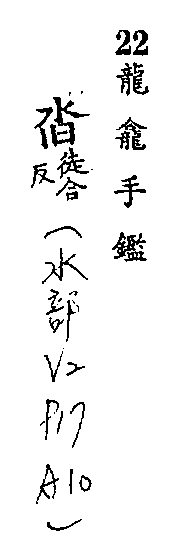 22龍龕手鑑
徒合反(水部V2P17A10)